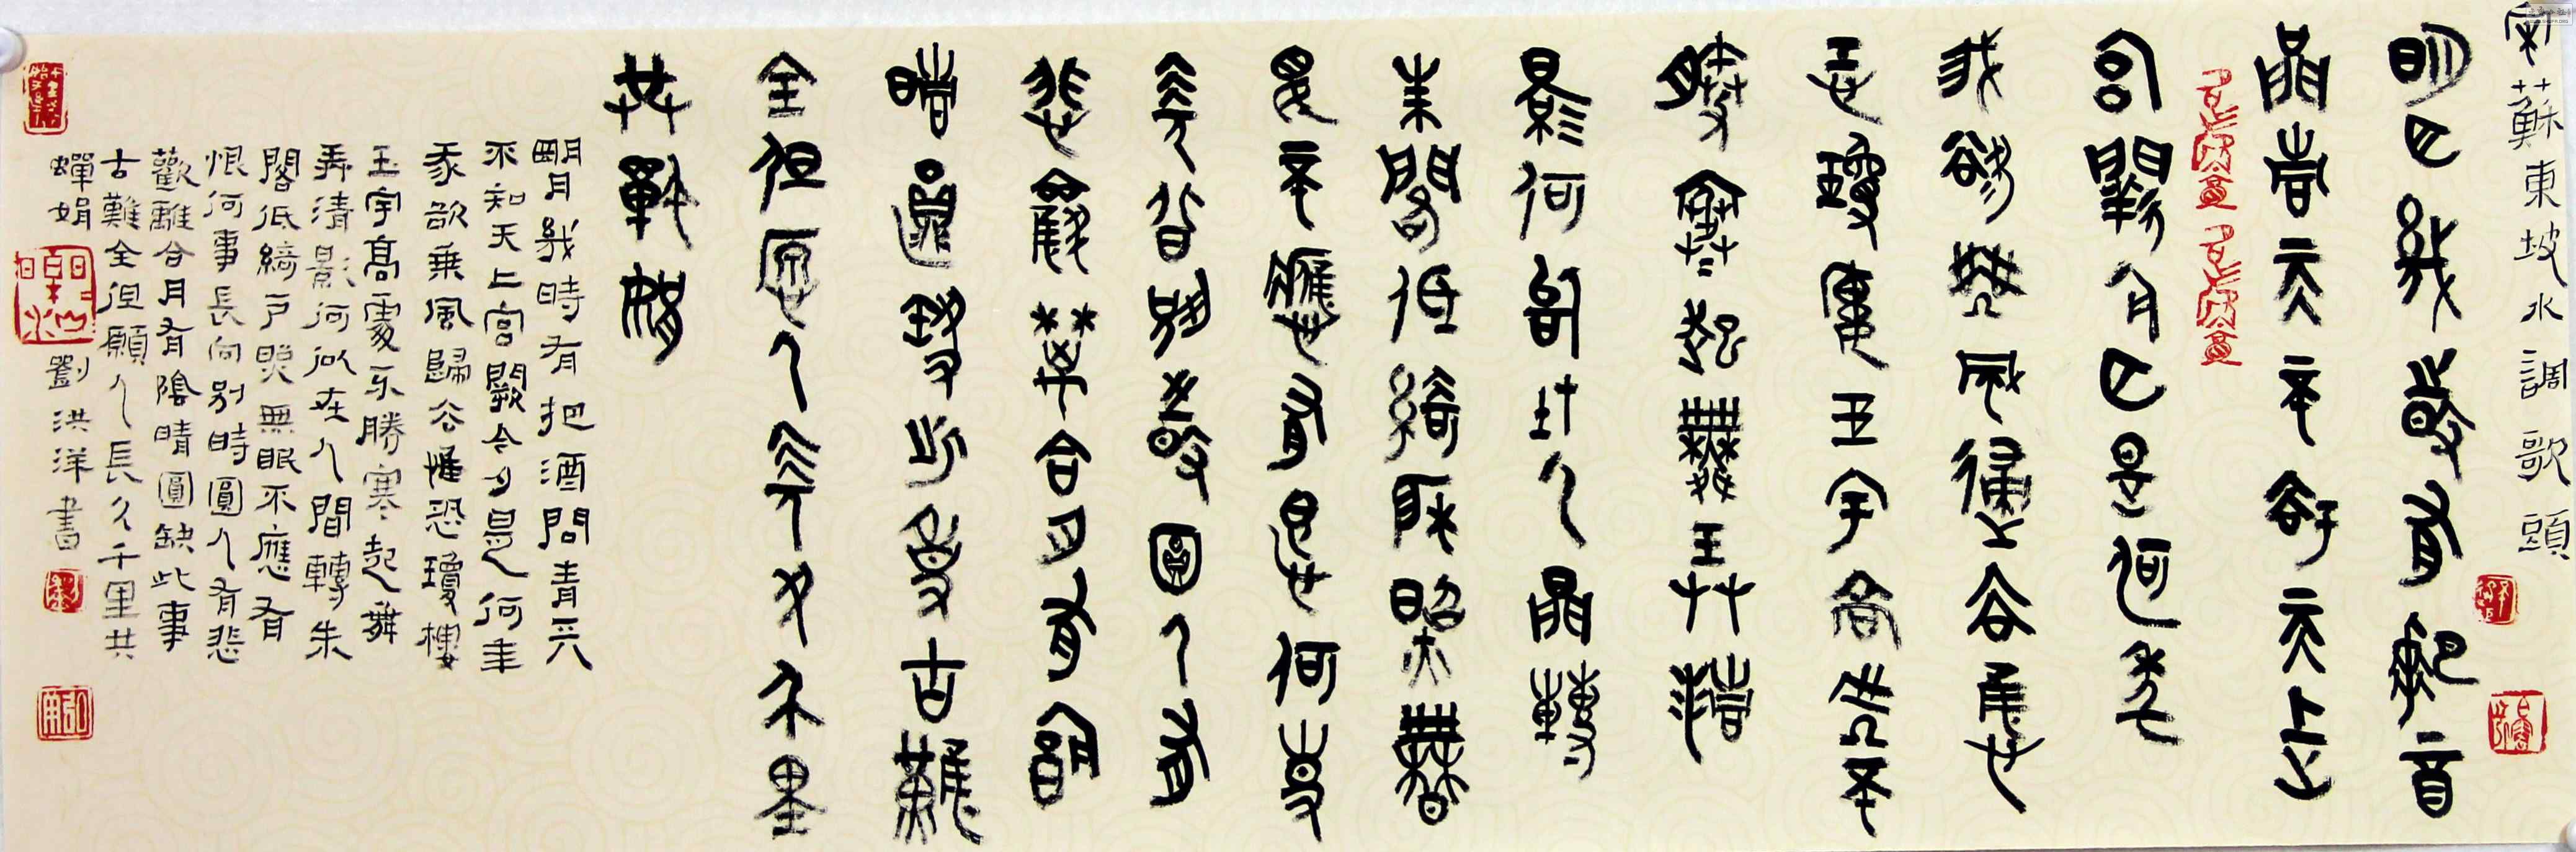 宋蘇東坡水調歌頭
明月幾時有把酒
問青天不知天上
宮闕今夕是何年
我欲乘風歸去惟
恐瓊樓玉宇高處不
勝寒起舞弄清
影何似在人間轉
朱閣低綺戶照無
眠不應有恨何事
長向別時圓人有
悲歡離合月有陰
晴圓缺此事古難
全但願人長久千里
共嬋娟
明月幾時有把酒問青天
不知天上宮闕今夕是何年
我欲乘風歸去惟恐瓊樓
玉宇高處不勝寒起舞
弄清影何似在人間轉朱
閣低綺戶照無眠不應有
恨何事長向別時圓人有悲
歡離合月有陰晴圓缺此事
古難全但願人長久千里共
嬋娟 劉洪洋書